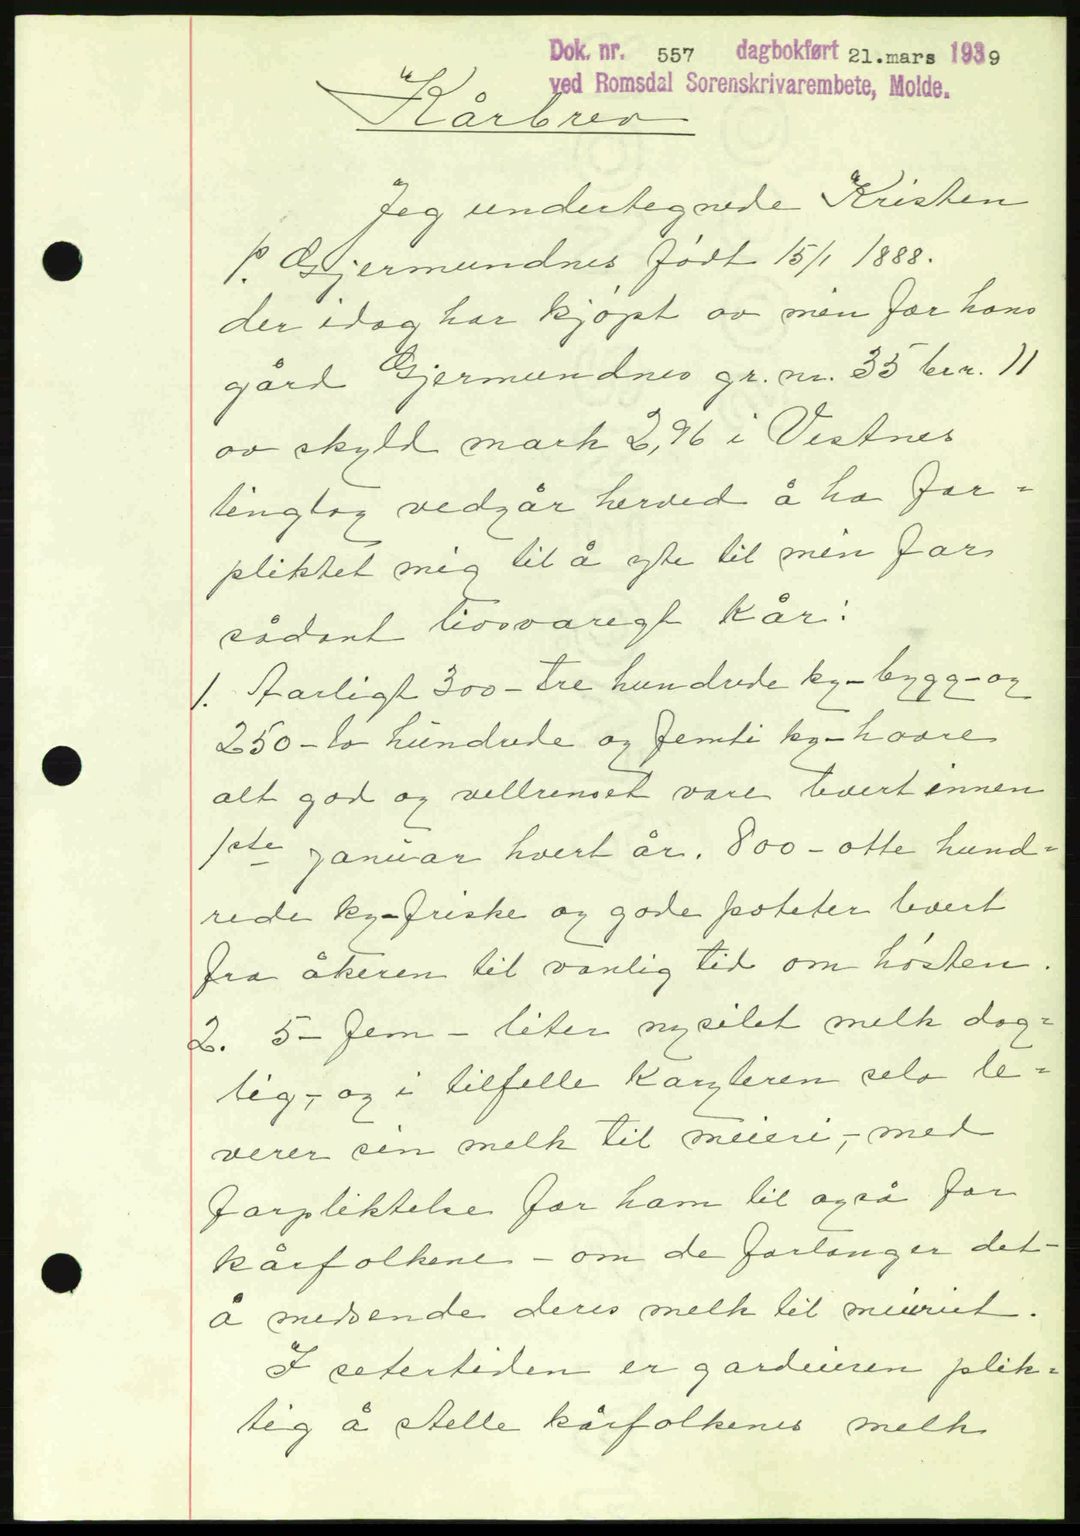 Dok. nr. 557 dagbokført 21.mars 1939
ved Romsdal Sorenskrivarembete, Molde.
Kårbrev
Jeg undertegnede Kristen
P. Gjermundnes født 15/1 1888.
der idag har kjøpt av min far hans
gård Gjermundnes gr. nr. 35 br. nr. 11
av skyld mark 2,96 i Vestnes
tinglag vedgår herved å ha for=
pliktet mig til å yte til min far
sådant livsvarigt kår:
1. Aarligt 300 - tre hundrede kg - bygg - og
250 - to hundrede og femti kg - havre
alt god og vellrenset vare levert innen
1ste januar hvert år. 800 - otte hund=
rede kg - friske og gode poteter levert
fra åkeren til vanlig tid om høsten.
2. 5 - fem - liter nysilet melk dag=
lig, - og i tilfelle karyteren selv le=
verer sin melk til meieri, - med
forpliktelse for ham til også for
kårfolkene - om de forlanger det -
å medsende deres melk til meieriet.
I setertiden er gardeieren plik=
tig å stelle kårfolkenes melk